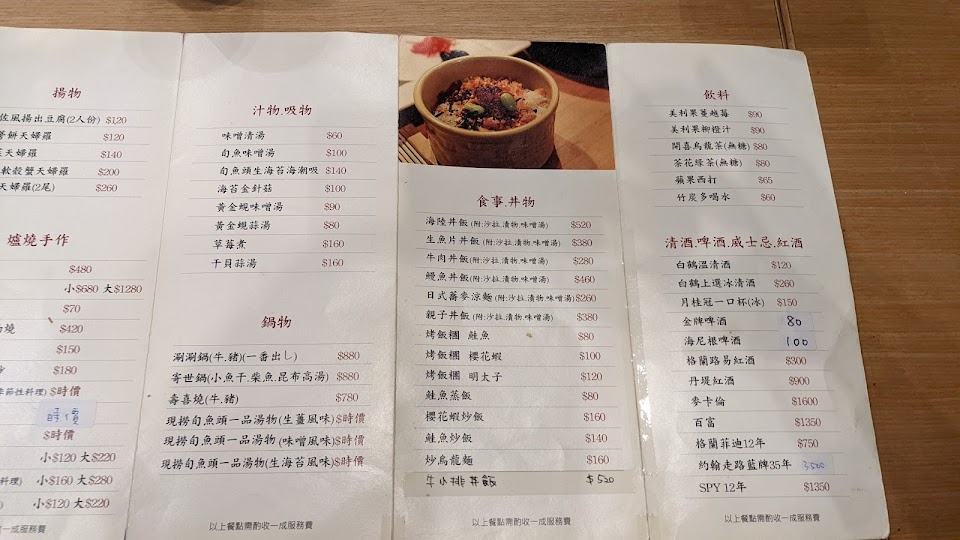 揚物
佐風揚出豆腐(2人份) $120
餅天婦羅 $120
天婦羅 $140
軟殼蟹天婦羅 $200
天婦羅(2尾) $260
爐燒手作
$480
小$680 大$1280
$70
燒 $420
$150
$180
季節性料理) $時價
時價
$時價
小$120 大$220
料理) 小$160 大$280
小$120 大$220
收一成服務費
汁物.吸物
味噌清湯 $60
旬魚味噌湯 $100
旬魚頭生海苔海潮吸 $140
海苔金針菇 $100
黃金蜆味噌湯 $90
黃金蜆蒜湯 $80
草莓煮 $160
干貝蒜湯 $160
鍋物
涮涮鍋(牛.豬)(一番出し) $880
寄世鍋(小魚干.柴魚.昆布高湯) $880
壽喜燒(牛.豬) $780
現撈旬魚頭一品湯物(生薑風味)$時價
現撈旬魚頭一品湯物(味噌風味)$時價
現撈旬魚頭一品湯物(生海苔風味)$時價
以上餐點需酌收一成服務費
食事.丼物
海陸丼飯(附:沙拉.漬物.味噌湯) $520
生魚片丼飯(附:沙拉.漬物.味噌湯) $380
牛肉丼飯(附:沙拉.漬物.味噌湯) $280
鰻魚丼飯(附:沙拉.漬物.味噌湯) $460
日式蕎麥涼麵(附:沙拉.漬物.味噌湯)$260
親子丼飯(附:沙拉.漬物.味噌湯) $380
烤飯糰 鮭魚 $80
烤飯糰 櫻花蝦 $100
烤飯糰 明太子 $120
鮭魚蒸飯 $80
櫻花蝦炒飯 $160
鮭魚炒飯 $140
炒烏龍麵 $160
牛小排丼飯 $520
以上餐點需酌收一成服務費
飲料
美利果蔓越莓 $90
美利果柳橙汁 $90
開喜烏龍茶(無糖) $80
茶花綠茶(無糖) $80
蘋果西打 $65
竹炭多喝水 $60
清酒.啤酒.威士忌.紅酒
白鶴溫清酒 $120
白鶴上選冰清酒 $260
月桂冠一口杯(冰) $150
金牌啤酒 80
海尼根啤酒 100
格蘭路易紅酒 $300
丹堤紅酒 $900
麥卡倫 $1600
百富 $1350
格蘭菲迪12年 $750
約翰走路藍牌35年 3500
SPY 12年 $1350
以上餐點需酌收一成服務費